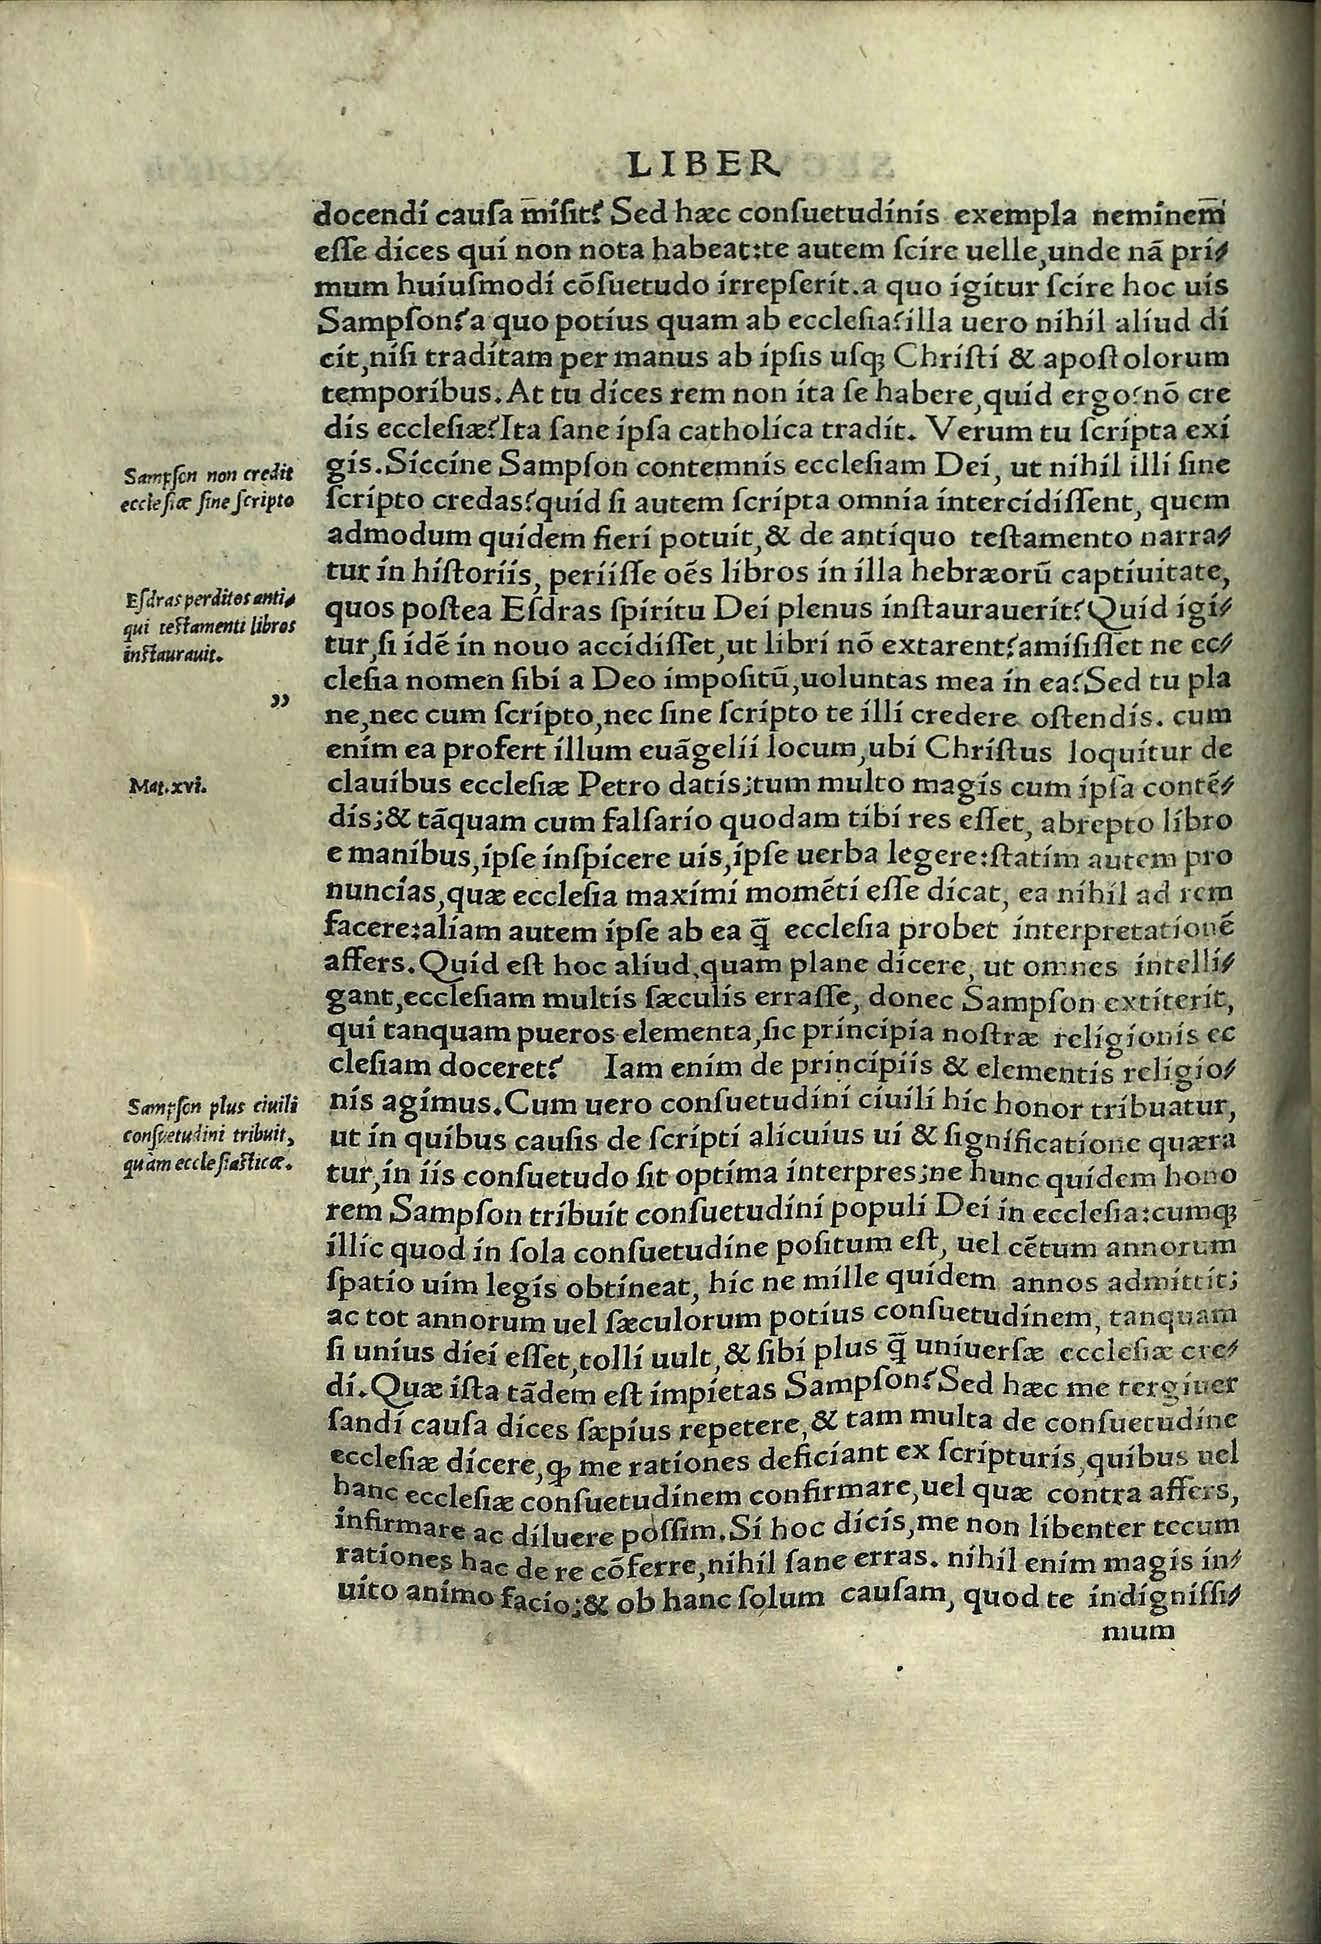 LIBER
docendi cauſa m̃iſit? Sed hæc conſuetudinis exempla neminem̃
eſſe dices qui non nota habeat:te autem ſcire uelle,unde nã pri⸗
mum huiuſmodi cõſuetudo irrepſerit.a quo igitur ſcire hoc uis
Sampſon?a quo potius quam ab eccleſia?illa uero nihil aliud di
cit,niſi traditam per manus ab ipſis uſq; Chriſti & apoſtolorum
temporibus.At tu dices rem non ita ſe habere,quid ergo?nõ cre
dis eccleſiæ?Ita ſane ipſa catholica tradit. Verum tu ſcripta exi
gis.Siccine Sampſon contemnis eccleſiam Dei, ut nihil illi ſine
ſcripto credas?quid ſi autem ſcripta omnia intercidiſſent, quem
admodum quidem fieri potuit,& de antiquo teſtamento narra⸗
tur in hiſtoriis, periiſſe oẽs libros in illa hebræorũ captiuitate,
quos poſtea Eſdras ſpiritu Dei plenus inſtaurauerit?Quid igi⸗
tur,ſi idẽ in nouo accidiſſet,ut libri nõ extarent?amiſiſſet ne ec⸗
cleſia nomen ſibi a Deo impoſitũ,uoluntas mea in ea?Sed tu pla
ne,nec cum ſcripto,nec ſine ſcripto te illi credere oſtendis. cum
enim ea profert illum euãgelii locum,ubi Chriſtus loquitur de
clauibus eccleſiæ Petro datis;tum multo magis cum ipſa contẽ⸗
dis;& tãquam cum falſario quodam tibi res eſſet, abrepto libro
e manibus,ipſe inſpicere uis,ipſe uerba legere:ſtatim autem pro
nuncias,quæ eccleſia maximi momẽti eſſe dicat, ea nihil ad rem
facere:aliam autem ipſe ab ea q̃ eccleſia probet interpretationẽ
affers.Quid eſt hoc aliud,quam plane dicere, ut omnes intelli⸗
gant,eccleſiam multis ſæculis erraſſe, donec Sampſon extiterit,
qui tanquam pueros elementa,ſic principia noſtræ religionis ec
cleſiam doceret? Iam enim de principiis & elementis religio⸗
nis agimus.Cum uero conſuetudini ciuili hic honor tribuatur,
ut in quibus cauſis de ſcripti alicuius ui & ſignificatione quæra
tur,in iis conſuetudo ſit optima interpres;ne hunc quidem hono
rem Sampſon tribuit conſuetudini populi Dei in eccleſia:cumq;
illic quod in ſola conſuetudine poſitum eſt, uel cẽtum annorum
ſpatio uim legis obtineat, hic ne mille quidem annos admittit;
ac tot annorum uel ſæculorum potius conſuetudinem, tanquam
ſi unius diei eſſet,tolli uult,& ſibi plus q̃ uniuerſæ eccleſiæ cre⸗
di.Quæ iſta tãdem eſt impietas Sampſon?Sed hæc me tergiuer
ſandi cauſa dices ſæpius repetere,& tam multa de conſuetudine
eccleſiæ dicere,ꝙ me rationes deficiant ex ſcripturis,quibus uel
hanc eccleſiæ conſuetudinem confirmare,uel quæ contra affers,
infirmare ac diluere poſſim.Si hoc dicis,me non libenter tecum
rationes hac de re cõferre,nihil ſane erras. nihil enim magis in⸗
uito animo facio;& ob hanc ſolum cauſam, quod te indigniſſi⸗
mum
Sampſon non credit
eccleſiæ ſine ſcripto
Eſdras perditos anti⸗
qui teſtamenti libros
inſtaurauit.
”
Mat.xvi.
Sampſon plus ciuili
conſuetudini tribuit,
quàm eccleſiaſticæ.